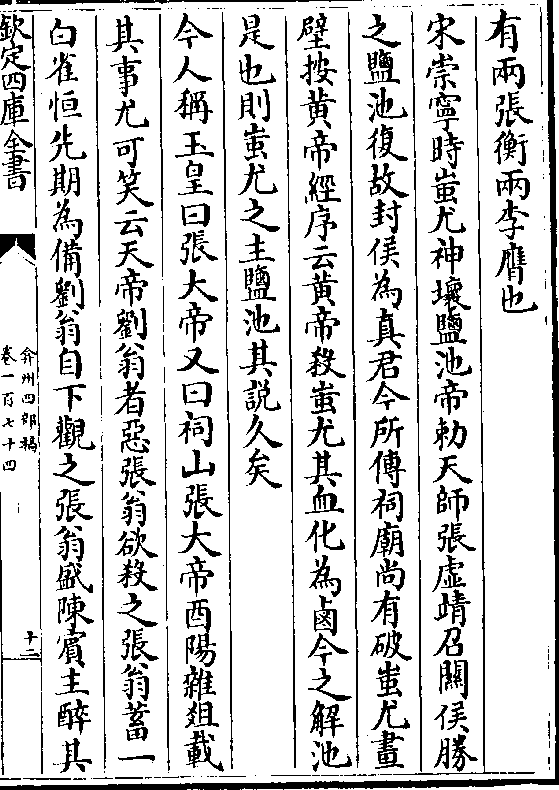 有兩張衡兩李膺也
宋崇寧時蚩尤神壞鹽池帝勅天師張虛靖召關侯勝
之鹽池復故封侯為真君今所傳祠廟尚有破蚩尤畫
壁按黄帝經序云黄帝殺蚩尤其血化為鹵今之解池
是也則蚩尤之主鹽池其説久矣
今人稱玉皇曰張大帝又曰祠山張大帝酉陽雜爼載
其事尤可笑云天帝劉翁者惡張翁欲殺之張翁蓄一
白雀恒先期為備劉翁自下觀之張翁盛陳賔主醉其
欽定四庫全書
弇州四部稿
卷一百七十四
十二